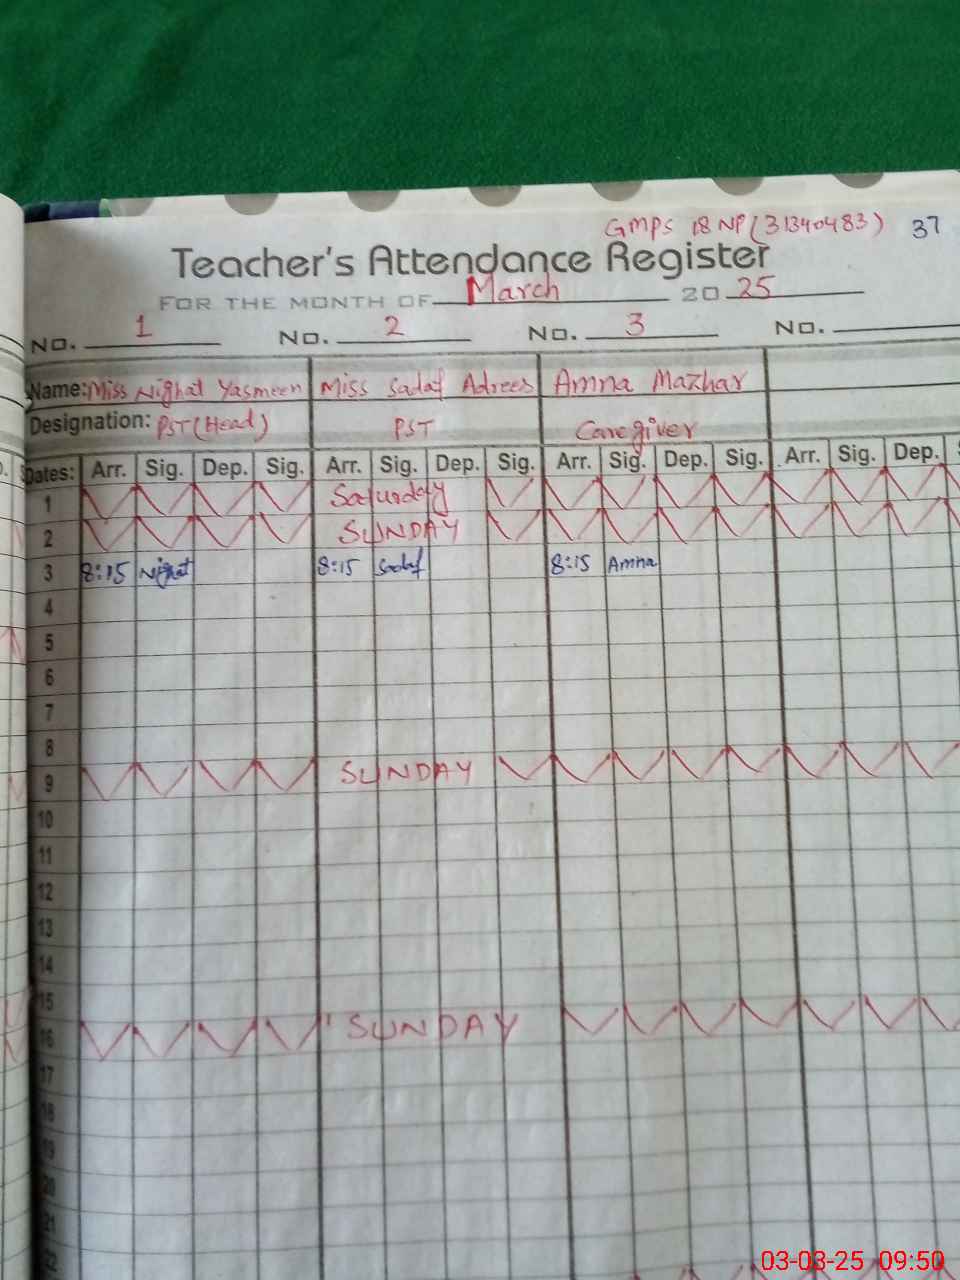 GMPS 18 NP (31340483) 37
Teacher's Attendance Register
FOR THE MONTH OF March 2025
No. 1 No. 2 No. 3 No.
Name: Miss Nighat Yasmeen Miss Sadaf Adrees Amna Mazhar
Designation: PST (Head) PST Caregiver
Dates: Arr. Sig. Dep. Sig. Arr. Sig. Dep. Sig. Arr. Sig. Dep. Sig. Arr. Sig. Dep.
1 Saturday
2 SUNDAY
3 8:15 Nighat 8:15 Sadaf 8:15 Amna
4
5
6
7
8
9 SUNDAY
10
11
12
13
14
15
16 SUNDAY
17
18
19
20
21
22
03-03-25 09:50